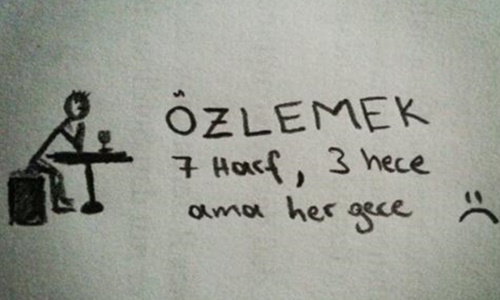 ÖZLEMEK
7 Harf, 3 hece
ama her gece